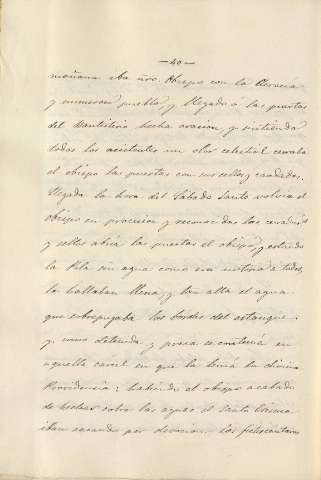 —40—
mañana iba nro. Obispo con la Clerecia
y numeroso pueblo, y llegado a las puertas
del Bautistirio hecha oracion, y sintiendo
todos los asistentes un olor celestial cerraba
el obispo las puertas con sus sellos y candados.
Llegada la hora del Sabado Santo volvia el
obispo en procesion y reconocidas las cerraduras
y sellos abria las puertas el obispo, y estando
la Pila sin agua como era notorio a todos,
la hallaban llena, y tan alta el agua
que sobrepujaba los bordes del estanque:
y, como detenida y presa se contenia en
aquella carcel en que la tenia la divina
Providencia: habiendo el obispo acabado
de hechar sobre las aguas el Santo Crisma
iban sacando por devocion los fieles cantaros